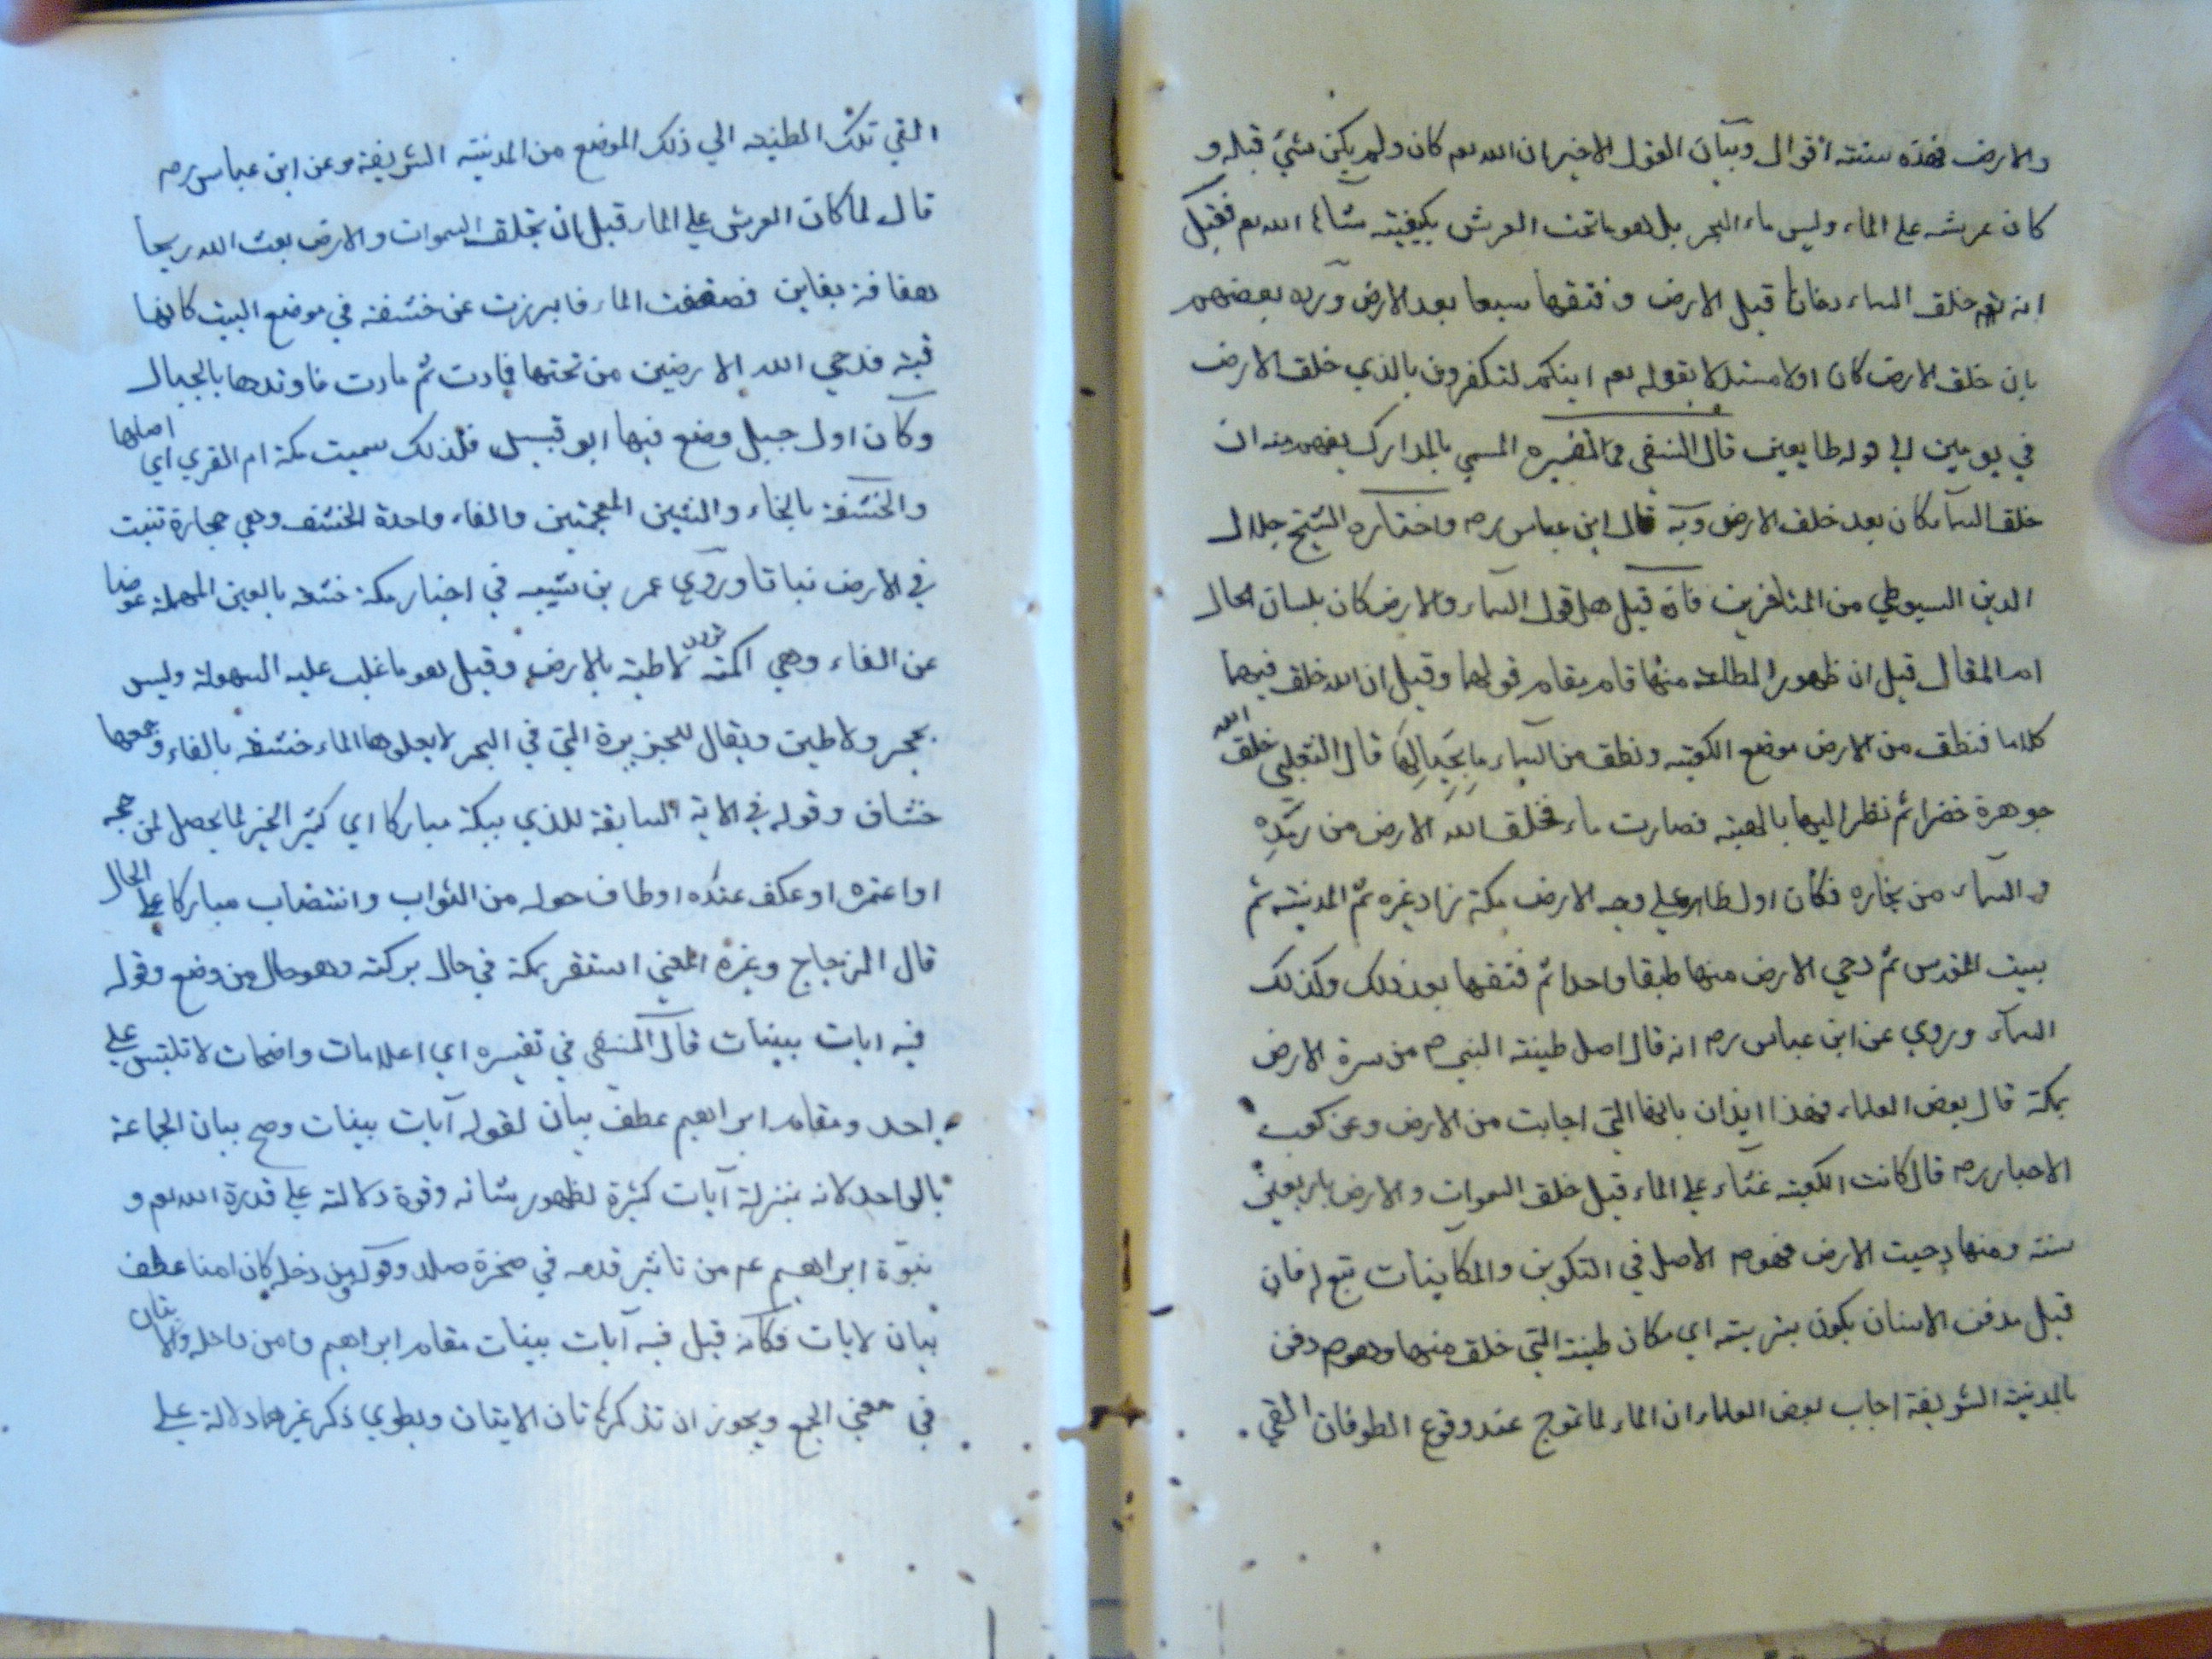 والارض فهذه ستة اقوال وبيان القول الاخير ان الله تعم كان ولم يكن شيئ قبله و
كان عرشه على الماء وليس ماء البحر بل هو ماتحت العرش بكيفيته شاء الله تعم فقيل
انه تعم خلق السماء دخانا قبل الارض وفتقها سبعا بعد الارض ورده بعضهم
بان خلق الارض كان اولا مستدلا بقوله تعم ائنكم لتكفرون بالذي خلق الارض
في يومين الى قوله طايعين قال النسفى في تفسيره المسمي بالمدارك يفهم منه ان
خلق السماء كان بعد خلق الارض وبه قال ابن عباس رم واختاره الشيخ جلال
الدين السيوطي من المتاخرين فان قيل هل قول السماء والارض كان بلسان الحال
ام المقال قيل ان ظهور الطاعة منها قام مقام قولهما وقيل ان الله خلق فيهما
كلاما فنطق من الارض موضع الكعبة ونطق من السماء ما بحيالها قال الثعلبي خلق الله
جوهرة خضرا ثم نظر اليها بالهيبة فصارت ماء فخلق الله الارض من زبده
و السماء من بخاره فكان اول ظاهر على وجه الارض مكة زاد غيره ثم المدينة ثم
بيت المقدس ثم دحي الارض منها طبقا واحدا ثم فتقها بعد ذلك وكذلك
السماء وروي عن ابن عباس رم انه قال اصل طينة النبي م من سرة الارض
بمكة قال بعض العلماء فهذا ايذان بانها التي اجابت من الارض وعن كعب
الاحبار رم قال كانت الكعبة غثاء على الماء قبل خلق السموات والارض باربعين
سنة ومنها دحيت الارض فهو م الاصل في التكوين والكاينات تبع له فان
قيل مدفن الانسان يكون بتربته اي مكان طينته التي خلق منها وهو م دفن
بالمدينة الشريفة اجاب بعض العلماء ان الماء لما تموج عند وقوع الطوفان القي
القي تلك الطينة الي ذلك الموضع من المدينة الشريفة وعن ابن عباس رم
قال لما كان العرش على الماء قبل ان يخلق السموات والارض بعث الله ريحا
هفافة فصفقت الماء فابرزت عن خشفة في موضع البيت كانها
قبة فدحي الله الارضين من تحتها فمادت ثم مادت فاوتدها بالجبال
وكان اول جبل وضع فيها ابو قبيس فلذلك سميت مكة ام القري اي اصلها
والخشفة بالخاء والشين المعجمتين والفاء واحدة الخشف وهي حجارة تنبت
في الارض نباتا وروي عمر بن شيبه في اخبار مكة خشعه بالعين المهملة عوضا
عن الفاء وهي اكمة لاطية بالارض وقيل هو ما غلب عليه السهولة وليس
بحجر ولا طين ويقال للجزيرة التي في البحر لا يعلوها الماء خشفه بالفاء وجمعها
خشاف وقوله في الاية السابقة للذي ببكة مباركا اي كثير الخير لما يحصل لمن حجه
او اعتمره او عكف عنده او طاف حوله من الثواب وانتصاب مباركا على الحال
قال الزجاج وغيره المعني استقر بمكة في حال بركته وهو حال من وضع وقوله
فيه ايات بينات قال النسفى في تفسيره اي اعلامات واضحات لا تلتبس على
احد ومقام ابراهيم عطف بيان لقوله آيات بينات وصح بيان الجماعة
بالواحد لانه بمنزلة آيات كثيرة لظهور شانه وقوة دلالته على قدرة الله تعم و
نبوة ابراهيم عم من تاثير قدمه في صخرة صلد وقوله ومن دخله كان امنا عطف
بيان لايات فكانه قيل فيه آيات بينات مقام ابراهيم وامن داخله والاثنان
في معني الجمع ويجوز ان تذكر هاتان الايتان ويطوي ذكر غيرهما دلالة على